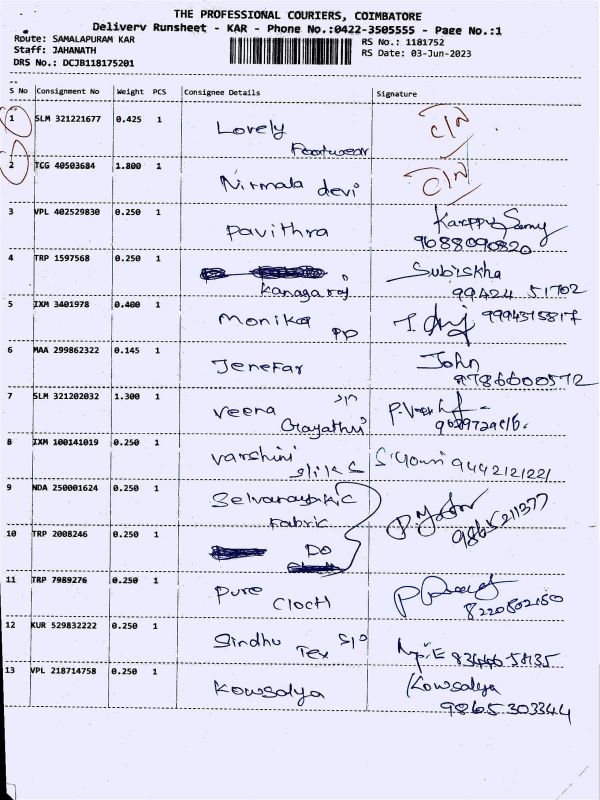 THE PROFESSIONAL COURIERS, COIMBATORE
Delivery Runsheet - KAR - Phone No.:0422-3505555 - Page No.:1
Route: SAMALAPURAM KAR
RS No.: 1181752
Staff: JAHANATH
RS Date: 03-Jun-2023
DRS No.: DCJB118175201
S No Consignment No Weight PCS Consignee Details Signature
1 SLM 321221677 0.425 1 Lovely Footwear C/N
2 TCG 40503684 1.800 1 Nirmala devi C/N
3 VPL 402529830 0.250 1 Pavithra Karppusamy
9688090820
4 TRP 1597568 0.250 1 Kanagaraj Subiskha
99424 51702
5 IXM 3401978 0.400 1 Monika PP 9994375817
6 MAA 299862322 0.145 1 Jenefar John
9786600572
7 SLM 321202032 1.300 1 Veena Gayathri
8 IXM 100141019 0.250 1 Varshini 9442121221
9 NDA 250001624 0.250 1 Selvanayakic Fabric
9865211377
10 TRP 2008246 0.250 1 Do
11 TRP 7989276 0.250 1 Pure Cloth
8220802150
12 KUR 529832222 0.250 1 Sindhu Tex
13 VPL 218714758 0.250 1 Kowsalya Kowsalya
9865303344